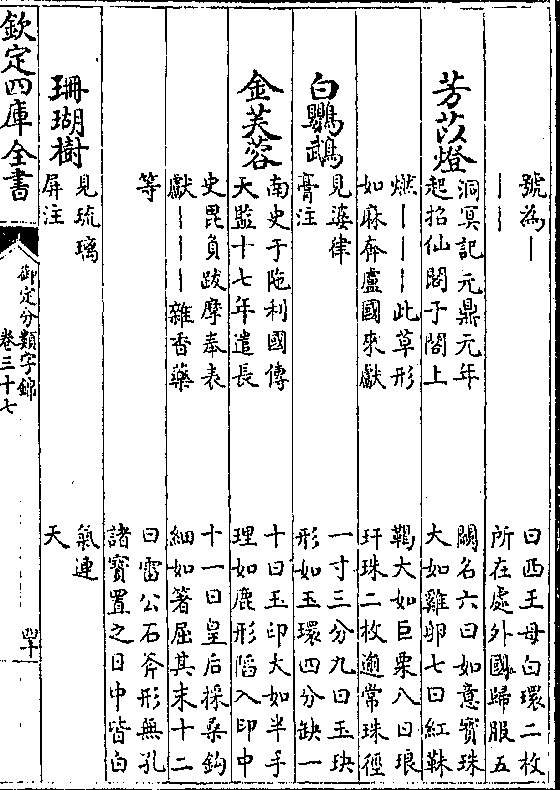 號為丨
丨丨
芳苡燈
洞冥記元鼎元年
起招仙閣于閣上
燃丨丨丨此草形
如麻奔盧國來獻
白鸚鵡
見婆律
膏注
金芙蓉
南史于陁利國傳
天監十七年遣長
史毘負跋摩奉表
獻丨丨丨雜香藥
等
珊瑚樹
見琉璃
屏注
曰西王母白環二枚
所在處外國歸服五
闕名六曰如意寶珠
大如雞卵七曰紅靺
鞨大如巨栗八曰琅
玕珠二枚逾常珠徑
一寸三分九曰玉玦
形如玉環四分缺一
十曰玉印大如半手
理如鹿形陷入印中
十一曰皇后採桑鈎
細如箸屈其末十二
曰雷公石斧形無孔
諸寶置之日中皆白
氣連
天
欽定四庫全書
御定分類字錦
卷三十七
四十